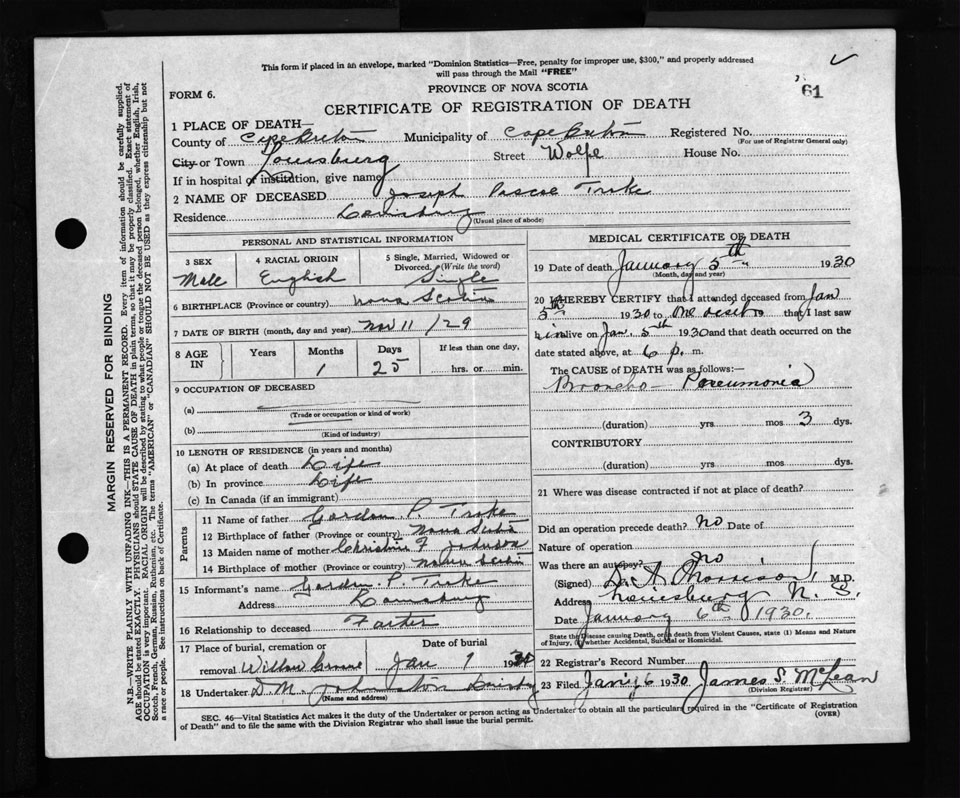 This form if placed in an envelope, marked "Dominion Statistics—Free, penalty for improper use, $300," and properly addressed
will pass through the Mail "FREE"
61
PROVINCE OF NOVA SCOTIA
FORM 6.
CERTIFICATE OF REGISTRATION OF DEATH
1 PLACE OF DEATH—
County of Cape Breton Municipality of Cape Breton Registered No.
(For use of Registrar General only)
City or Town Louisburg Street Wolfe House No.
If in hospital or institution, give name
2 NAME OF DECEASED Joseph Pascoe Troke
Residence Louisburg
(Usual place of abode)
PERSONAL AND STATISTICAL INFORMATION
3 SEX 4 RACIAL ORIGIN 5 Single, Married, Widowed or
Divorced. (Write the word)
Male English Single
6 BIRTHPLACE (Province or country) Nova Scotia
7 DATE OF BIRTH (month, day and year) Nov 11 /29
8 AGE IN Years Months Days If less than one day,
1 25 hrs. or min.
9 OCCUPATION OF DECEASED
(a)
(Trade or occupation or kind of work)
(b)
(Kind of industry)
10 LENGTH OF RESIDENCE (in years and months)
(a) At place of death Life
(b) In province Life
(c) In Canada (if an immigrant)
Parents
11 Name of father Gordon P. Troke
12 Birthplace of father (Province or country) Nova Scotia
13 Maiden name of mother Christine F Johnson
14 Birthplace of mother (Province or country) Nova Scotia
15 Informant's name Gordon P. Troke
Address Louisburg
16 Relationship to deceased Father
17 Place of burial, cremation or Date of burial
removal Jan 1930
18 Undertaker D. M. Johnston
(Name and address)
MEDICAL CERTIFICATE OF DEATH
19 Date of death January 5th 1930
(Month, day and year)
20 I HEREBY CERTIFY that I attended deceased from Jan
5th 1930 to that I last saw
him alive on Jan. 5th 1930 and that death occurred on the
date stated above, at 6 p. m.
The CAUSE of DEATH was as follows:—
Broncho- Pneumonia
(duration) yrs mos 3 dys.
CONTRIBUTORY
(duration) yrs. mos. dys.
21 Where was disease contracted if not at place of death?
Did an operation precede death? No Date of
Nature of operation
Was there an autopsy? No
(Signed) Morrison M.D.
Address Louisburg N. S.
Date January 6th 1930.
State the Disease causing Death, or in death from Violent Causes, state (1) Means and Nature
of Injury, or Whether Accidental, Suicidal or Homicidal.
22 Registrar's Record Number
23 Filed Jan'y 6 1930 James S. McLean
(Division Registrar)
SEC. 46—Vital Statistics Act makes it the duty of the Undertaker or person acting as Undertaker to obtain all the particulars required in the "Certificate of Registration
of Death" and to file the same with the Division Registrar who shall issue the burial permit.
(OVER)
MARGIN RESERVED FOR BINDING
N.B.—WRITE PLAINLY WITH UNFADING INK—THIS IS A PERMANENT RECORD. Every item of information should be carefully supplied.
AGE should be stated EXACTLY. PHYSICIANS should STATE CAUSE OF DEATH in plain terms, so that it may be properly classified. Exact statement of
OCCUPATION is very important. RACIAL ORIGIN will be described by stating to what people or tongue the deceased person belonged, whether English, Irish,
Scotch, French, German, Russian, Ruthenian, etc. The terms "AMERICAN" or "CANADIAN" SHOULD NOT BE USED as they express citizenship but not
a race or people. See instructions on back of Certificate.